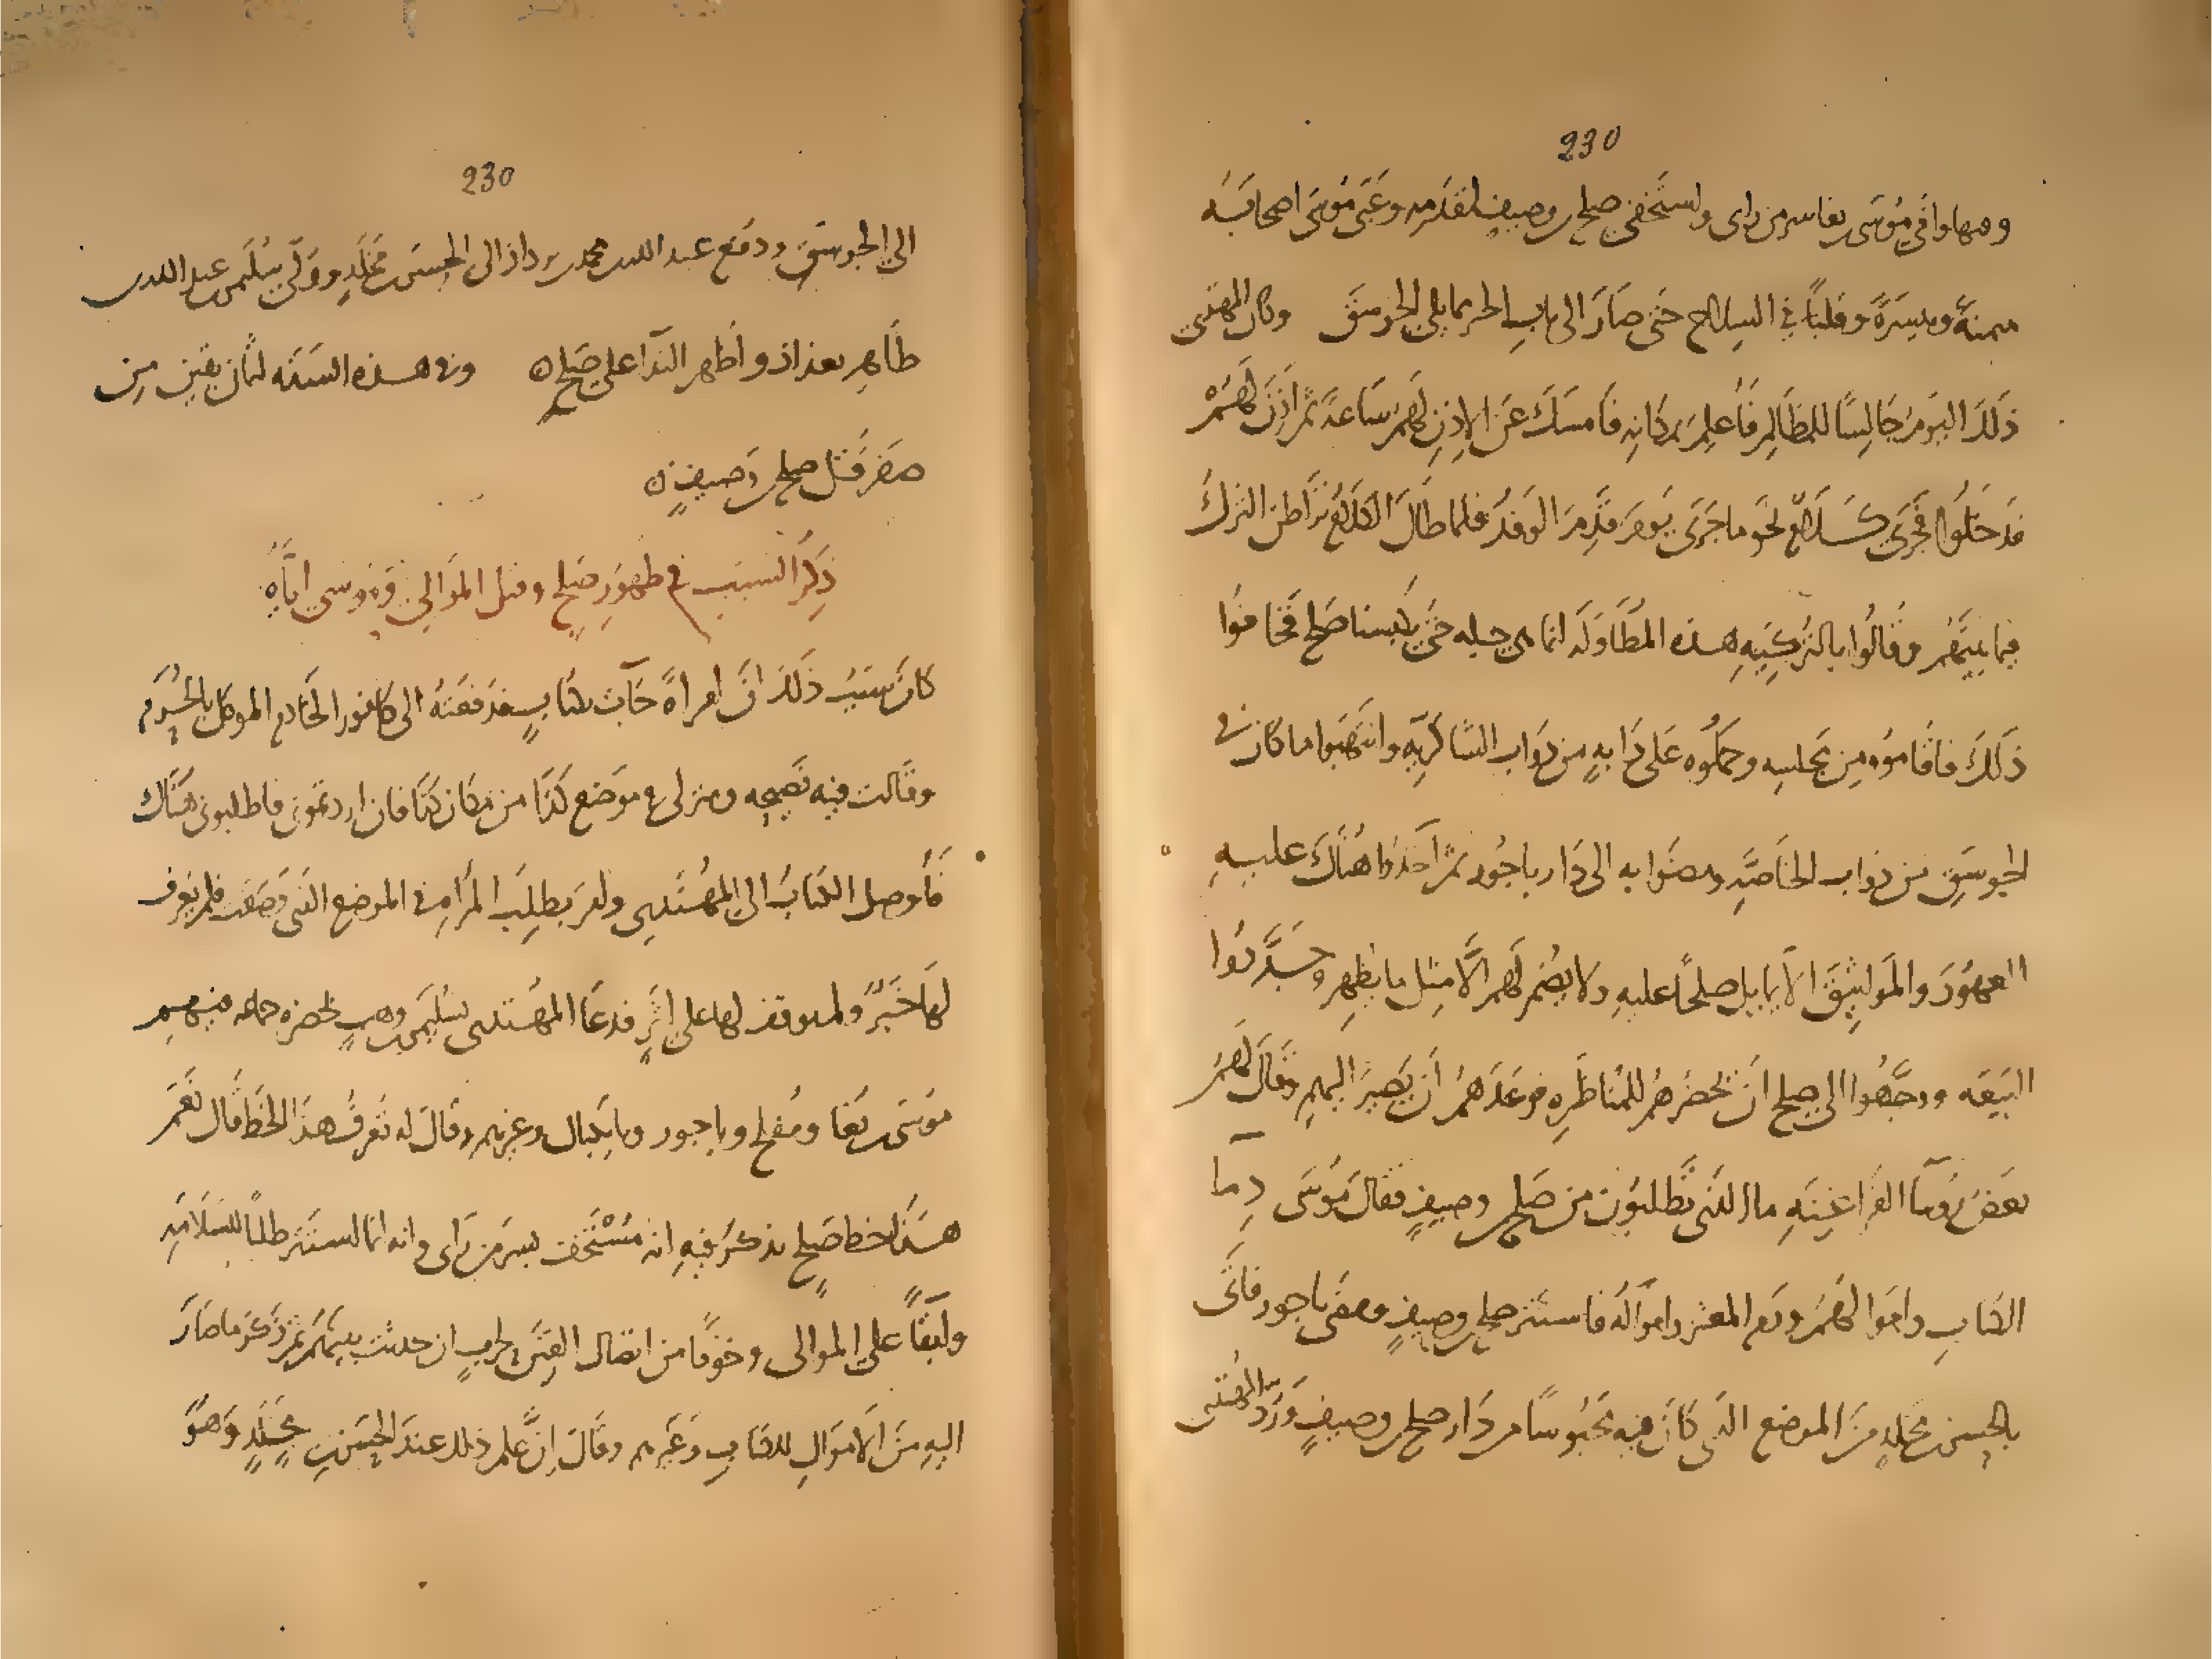 230
وفيها وافى موسى بن بغا سر من راى واستخفى صلح بن وصيف لمقدمه وعبى موسى اصحابه
ميمنة وميسرة وقلبا في السلاح حتى صار الى باب الحير مما يلي الجوسق وكان المهتدي
ذلك اليوم جالسا للمظالم فأعلم بمكانه فأمسك عن الإذن لهم ساعة ثم أذن لهم
فدخلوا فجرى كلام نحو ما جرى يوم قدم الوفد فلما طال الكلام تراطن الترك
فيما بينهم وقالوا بالتركية هذه المطاولة انما هي حيله حتى يكبسنا صلح فخافوا
ذلك فاقاموه من مجلسه وحملوه على دابه من دواب الشاكريه وانتهبوا ما كان في
الجوسق من دواب الخاصة ومضوا به الى دار ياجور ثم أخذوا هناك عليه
العهود والمواثيق الا يمايل صلحا عليهم ولا يضمر لهم إلا مثل ما يظهر وجددوا
البيعه ووجهوا الى صلح أن يحضرهم للمناظره فوعدهم أن يصير اليهم وقال لهم
بعض رؤسا الفراغنة ما الذي تطلبون من صلح بن وصيف فقال موسى دما
الكتاب واموالهم ودم المعتز وامواله فاستتر صلح بن وصيف ومضى ياجور فأتى
بالحسن بن مخلد من الموضع الذي كان فيه محبوسا من دار صلح بن وصيف ورد المهتدي
230
الى الجوسق ودفع عبد الله بن محمد بن يزداذ الى الحسن بن مخلد وولي سليمن بن عبد الله بن
طاهر بغداذ وأظهر الندا على صلح ه وفي هذه السنه لثمان بقين من
صفر قتل صلح بن وصيف ه
ذكر السبب في ظهور صلح وقتل الموالي وموسى اياه
كان سبب ذلك أن امرأة جاءت بكتاب فدفعته الى كافور الخادم الموكل بالحرم
وقالت فيه نصيحه ومنزلي في موضع كذا من مكان كذا فان اردتموني فاطلبوني هناك
فأوصل الكتاب الى المهتدي ولم يطلب المرأة في الموضع الذي وصفت فلم يعرف
لها خبر ولم يوقف لها على اثر فدعا المهتدي سليمن بن وهب بحضره جماعه منهم
موسى بن بغا ومفلح وياجور وبايكبال وغيرهم وقال له تعرف هذا الخط قال نعم
هذا خط صلح يذكر فيه انه مستخف بسر من راى وانه انما استتر طلبا للسلامه
وابقا على الموالي وخوفا من اتصال الفتن بحرب ان حدثت بينهم ثم ذكر ما صار
اليه من الأموال للكتاب وغيرهم وقال إن علم ذلك عند الحسن بن مخلد وهو